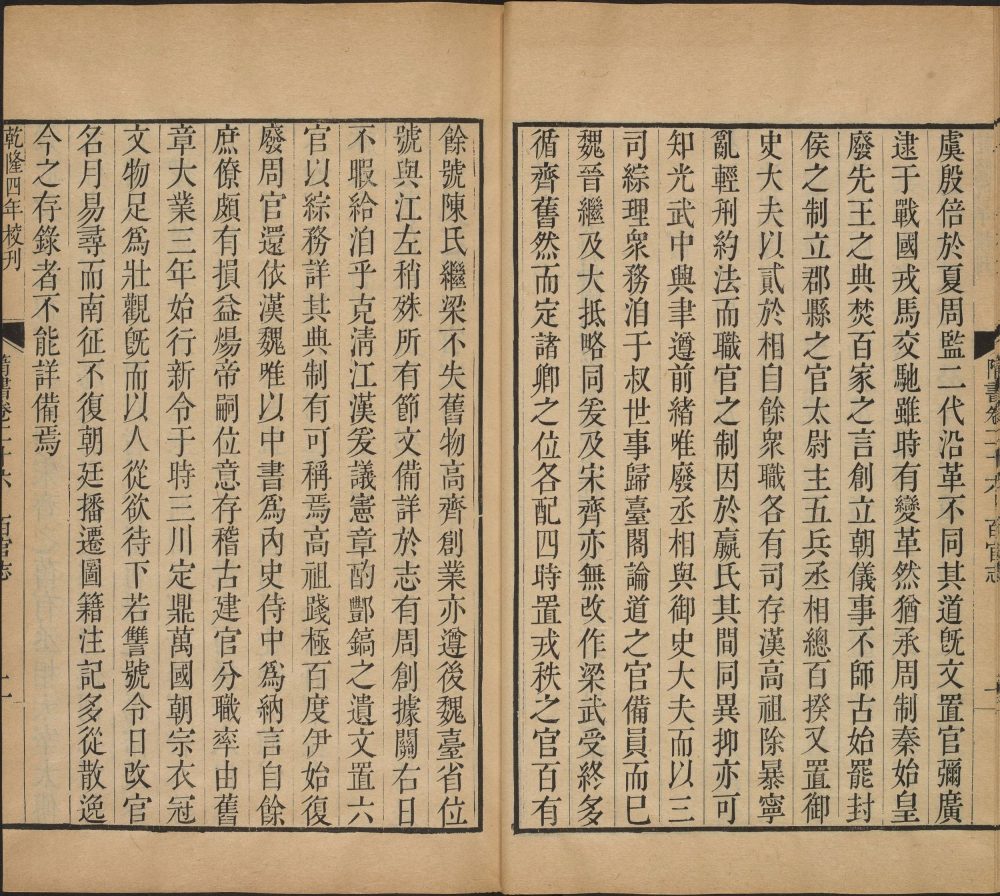 虞殷倍於夏周監二代沿革不同其道旣文置官彌廣
逮于戰國戎馬交馳雖時有變革然猶承周制秦始皇
廢先王之典焚百家之言創立朝儀事不師古始罷封
侯之制立郡縣之官太尉主五兵丞相總百揆又置御
史大夫以貳於相自餘衆職各有司存漢高祖除暴寧
亂輕刑約法而職官之制因於嬴氏其間同異抑亦可
知光武中興聿遵前緒唯廢丞相與御史大夫而以三
司綜理衆務洎于叔世事歸臺閣論道之官備員而已
魏晉繼及大抵略同爰及宋齊亦無改作梁武受終多
循齊舊然而定諸卿之位各配四時置戎秩之官百有
隋書卷二十六 百官志
餘號陳氏繼梁不失舊物高齊創業亦遵後魏臺省位
號與江左稍殊所有節文備詳於志有周創據關右日
不暇給洎乎克清江漢爰議憲章酌酆鎬之遺文置六
官以綜務詳其典制有可稱焉高祖踐極百度伊始復
廢周官還依漢魏唯以中書爲內史侍中爲納言自餘
庶僚頗有損益煬帝嗣位意存稽古建官分職率由舊
章大業三年始行新令于時三川定鼎萬國朝宗衣冠
文物足爲壯觀旣而以人從欲待下若讐號令日改官
名月易尋而南征不復朝廷播遷圖籍注記多從散逸
今之存錄者不能詳備焉
乾隆四年校刊 隋書卷二十六 百官志 二